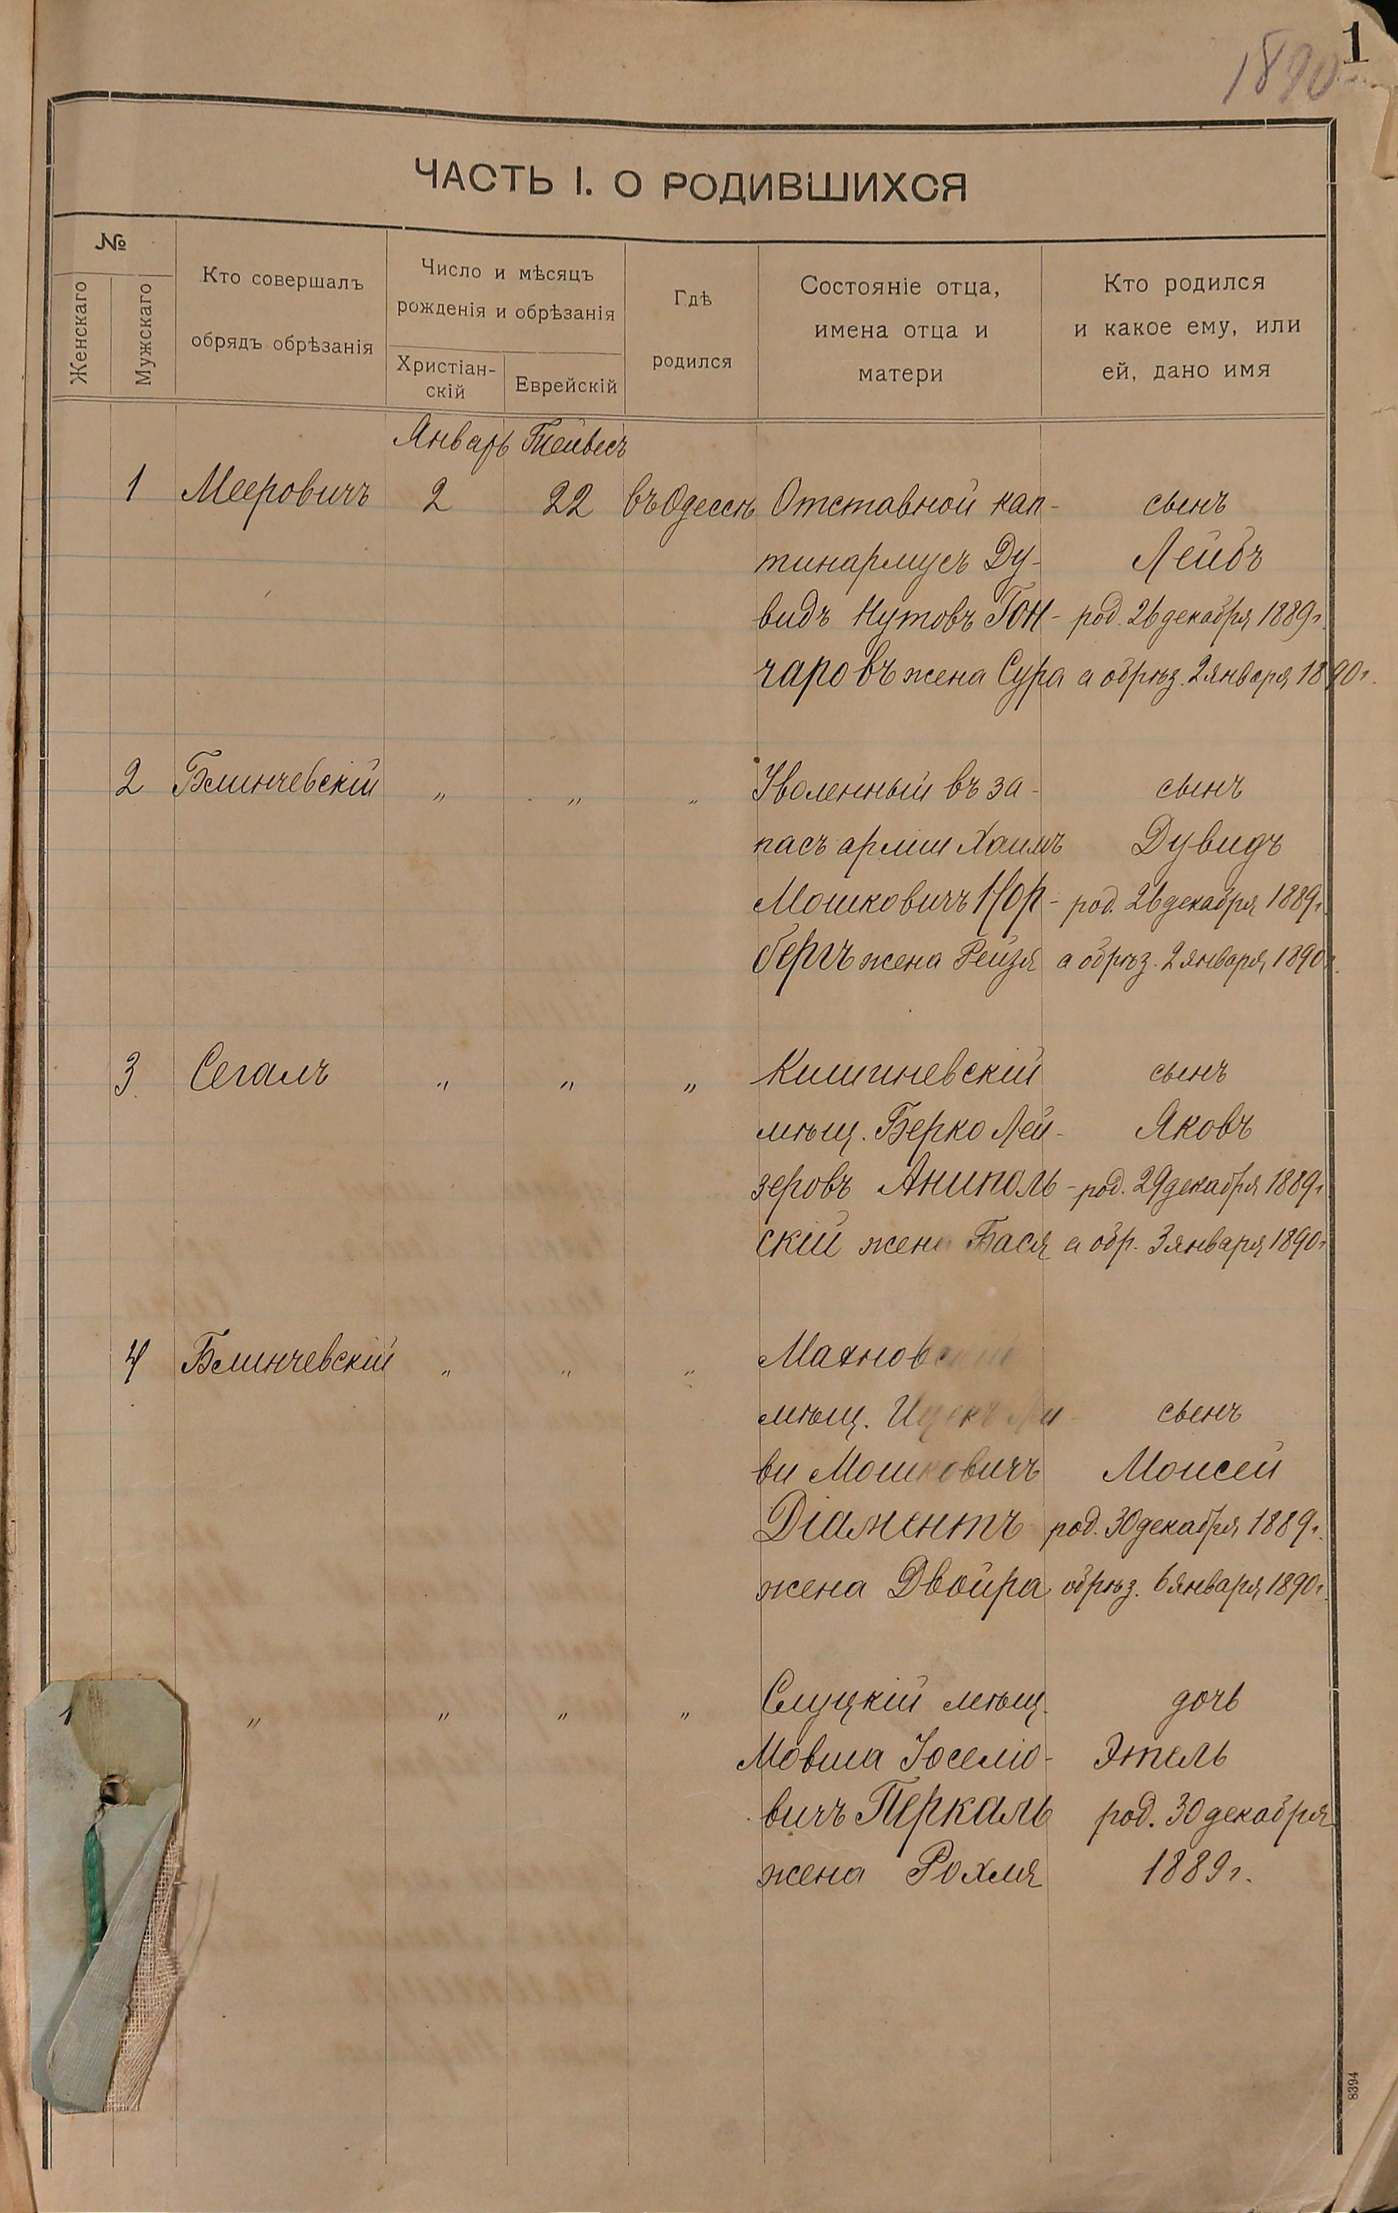 1
1890
ЧАСТЬ I. О РОДИВШИХСЯ
№
Женскаго
Мужскаго
Кто совершалъ
обрядъ обрѣзанія
Число и мѣсяцъ
рожденія и обрѣзанія
Христіан-
скій
Еврейскій
Гдѣ
родился
Состояніе отца,
имена отца и
матери
Кто родился
и какое ему, или
ей, дано имя
Январь Тейвесъ
1 Мееровичъ 2 22 въ Одессѣ Отставной кап- сынъ
тинармусъ Ду- Лейбъ
видъ Нутовъ Гон- род. 26 декабря 1889 г.
чаровъ жена Сура а обрѣз. 2 января 1890 г.
2 Блинчевскій " " " Уволенный въ за- сынъ
пасъ арміи Хаимъ Дувидъ
Мошковичъ Нор- род. 26 декабря 1889 г.
бергъ жена Рейзя а обрѣз. 2 января 1890 г.
3 Сегалъ " " " Кишиневскій сынъ
мѣщ. Берко Лей- Яковъ
зеровъ Аниполь- род. 29 декабря 1889 г.
скій жена Бася а обр. 3 января 1890 г.
4 Блинчевскій " " " Махновскій
мѣщ. Ицекъ Ле- сынъ
ви Мошковичъ Моисей
Діаментъ род. 30 декабря 1889 г.
жена Двойра обрѣз. 6 января 1890 г.
1 " " " " Слуцкій мѣщ. дочь
Мовша Іоселіо- Этель
вичъ Перкаль род. 30 декабря
жена Рохля 1889 г.
8394